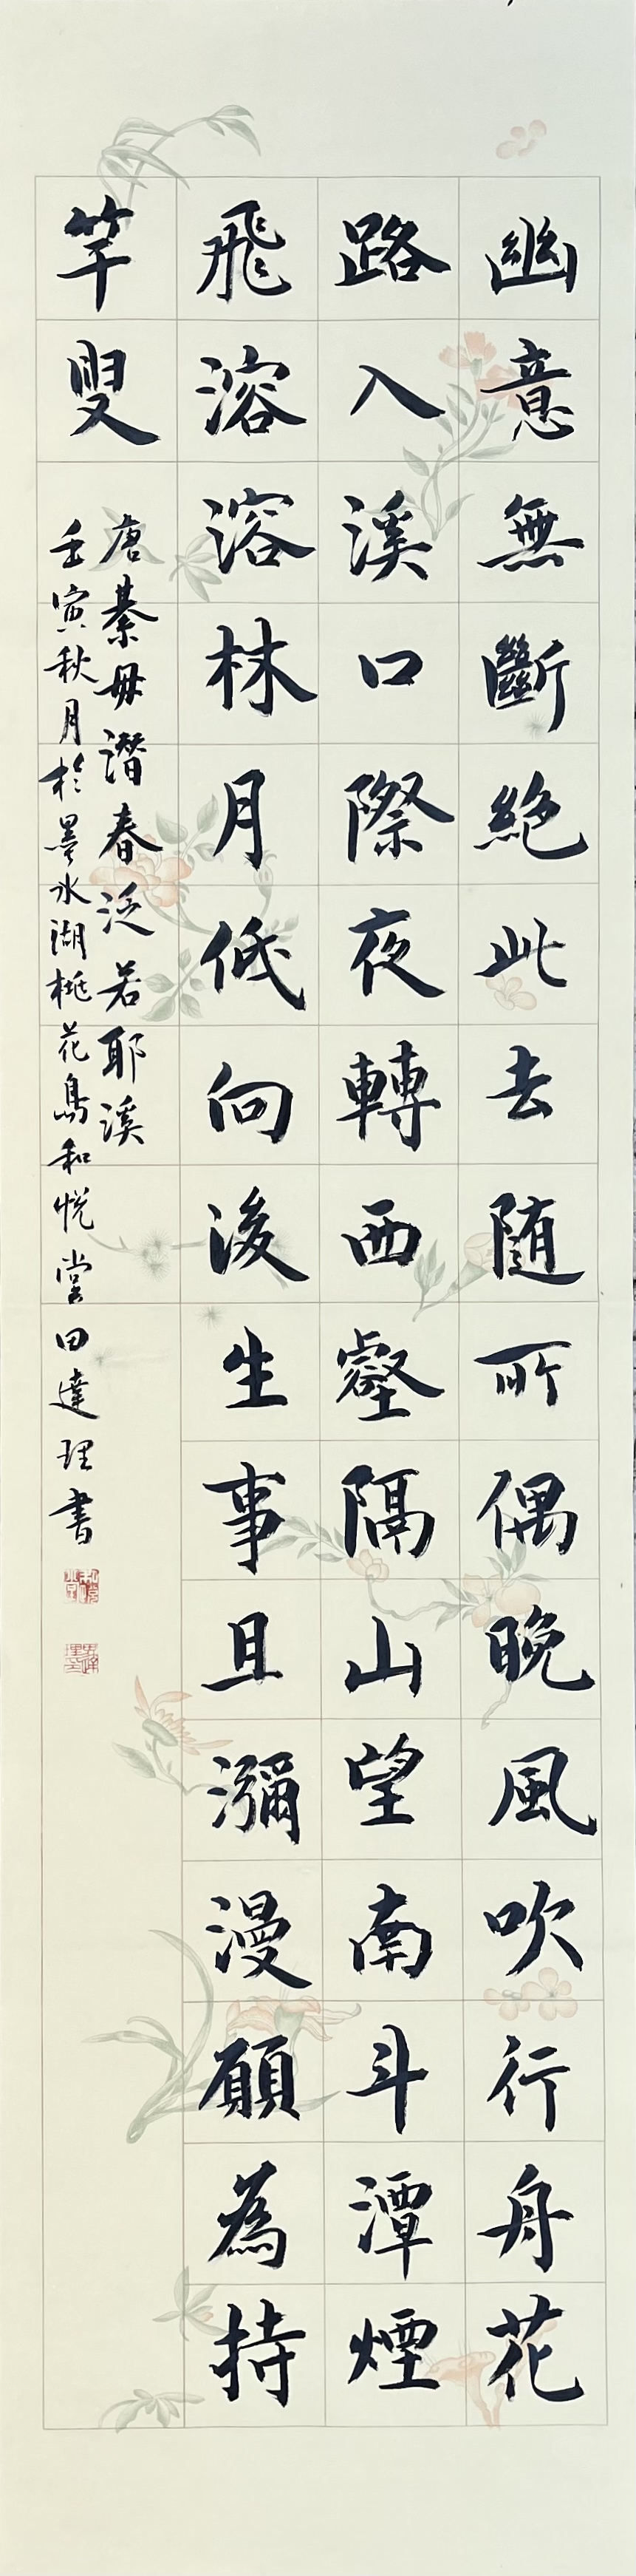 幽意無斷絕此去随所偶晚風吹行舟花
路入溪口際夜轉西壑隔山望南斗潭煙
飛溶溶林月低向後生事且瀰漫願為持
竿叟
唐綦毋潛春泛若耶溪
壬寅秋月於墨水湖桃花島和悅堂田達理書